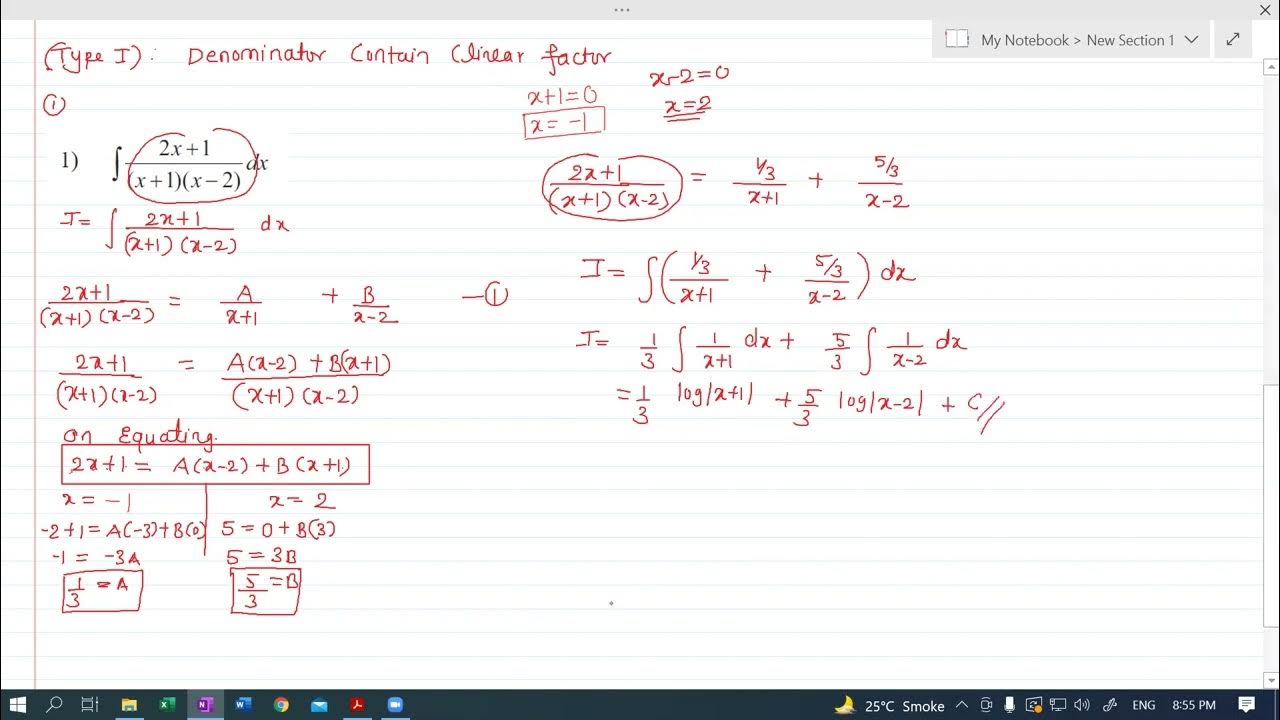 My Notebook > New Section 1
(Type I) : Denominator Contain (linear factor
①
1) ∫ 2x+1/(x+1)(x−2) dx
I = ∫ 2x+1/(x+1)(x-2) dx
2x+1/(x+1)(x-2) = A/x+1 + B/x-2 —①
2x+1/(x+1)(x-2) = A(x-2) + B(x+1)/(x+1)(x-2)
on Equating.
2x+1 = A(x-2) + B(x+1)
x = -1
-2+1 = A(-3)+B(0)
-1 = -3A
1/3 = A
x = 2
5 = 0 + B(3)
5 = 3B
5/3 = B
x+1=0
x = -1
x-2=0
x=2
2x+1/(x+1)(x-2) = 1/3/x+1 + 5/3/x-2
I = ∫(1/3/x+1 + 5/3/x-2) dx
I = 1/3 ∫ 1/x+1 dx + 5/3 ∫ 1/x-2 dx
= 1/3 log|x+1| + 5/3 log|x-2| + C//
25°C Smoke
ENG
8:55 PM